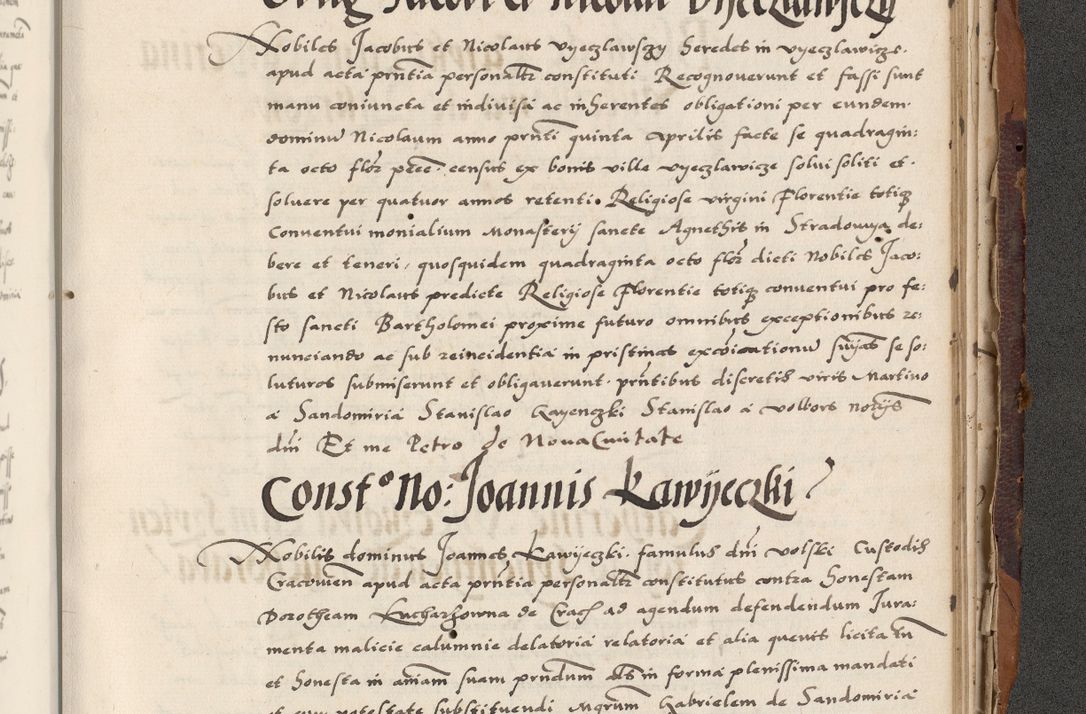 Jacobi et Nicolai Vyeczlawsczy
Nobiles Jacobus et Nicolaus vyeczlawsczy heredes in vyeczlawicze.
apud acta prñtia personaltr constituti Recognoverunt et fassi sunt
manu coniuncta et indivisa ac inherentes obligationi per eundem
dominu Nicolaum anno prñti quinta Aprilis facte se quadragin:
ta octo flor pecc. census ex bonis ville vyeczlawicze solui soliti et
soluere per quatuor annos retenti. Religiose virgini Florentie totiq
Conventui monialium Monasterij sancte Agnethis in Stradomya de:
bere et teneri, quosquidem quadraginta octo flor dicti Nobiles Jaco:
bus et Nicolaus predicte Religiose Florentie totiq conventui pro fe:
sto sancti Bartholomei proxime futuro omnibus exceptionibus re:
nunciando ac sub reincidentia in pristinas excoicationu suas se so:
luturos submiserunt et obligaverunt. prñtibus discretis viris Martino
a Sandomiria Stanislao Stanislao a volbors notijs
dñi Et me Petro de Nova Civitate
Constº No: Joannis Kawijeczki
Nobilis dominus Joannes Kawijeczki. famulus dñi volski Custodis
Cracovien apud acta prñtia personaltr constitutus contra honestam
Dorotheam Kucharzowna de Crach ad agendum defendendum Jura:
menta malicie calumnie delatoria relatoria et alia quevis licita tñ
et honesta in aniam suam prñdum als in forma plenissima mandati
et cum potestate substituendi Mgrum Gabrielem de Sandomiria